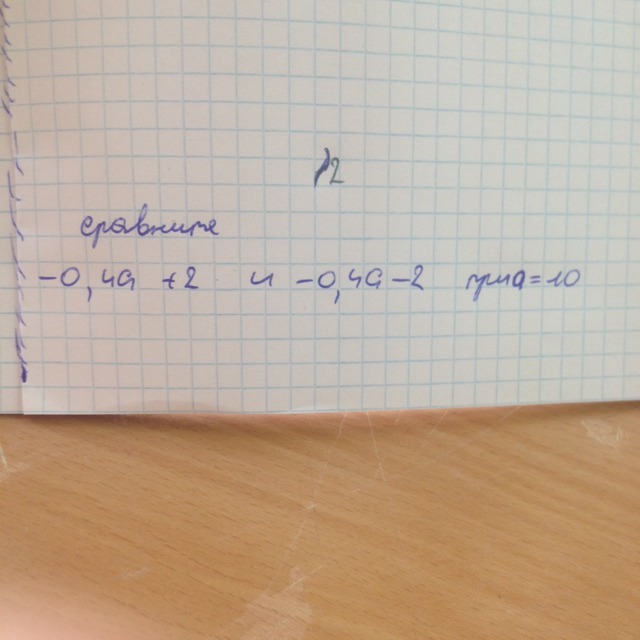 2
сравните
-0,4a +2 и -0,4a-2 при a=10